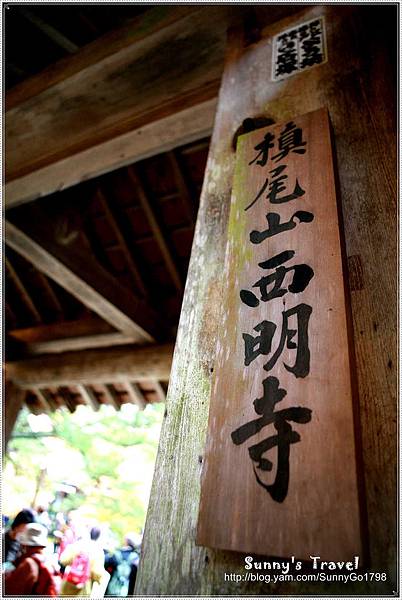 槙尾山西明寺
Sunny's Travel
http://blog.yam.com/SunnyGo1798